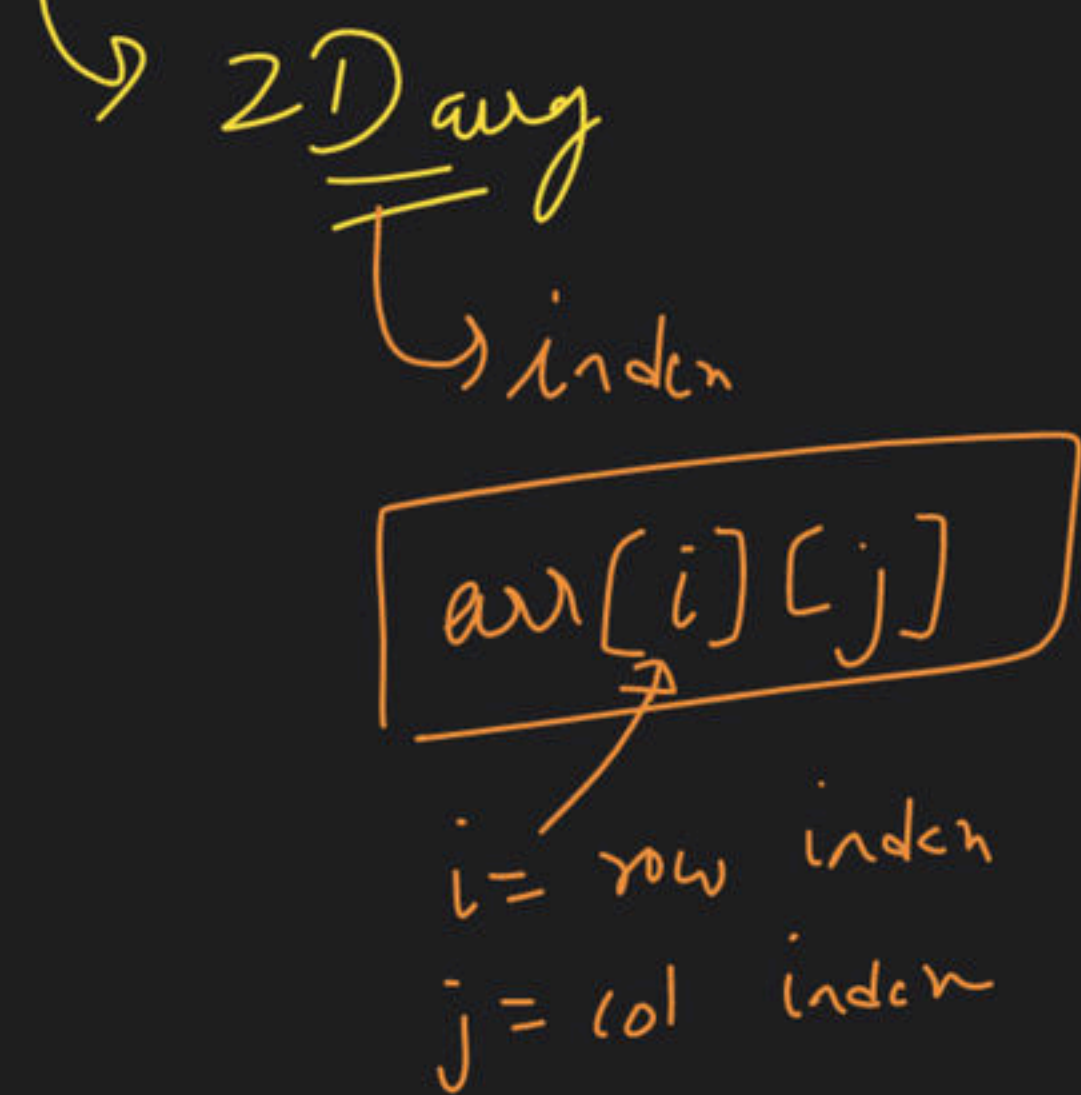 2D array
index
arr[i][j]
i = row index
j = col index